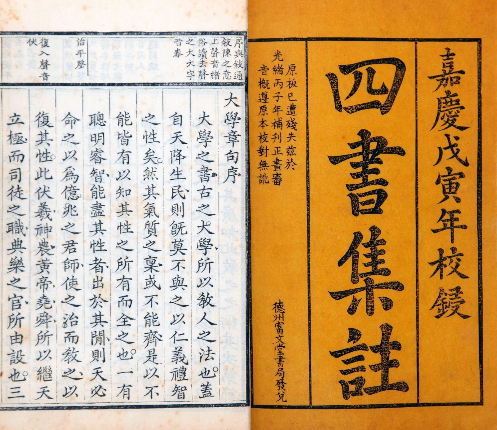 嘉慶戊寅年校鋟
四書集註
原板已遭殘失茲於
光緒丙子年補刊正畫審
音概遵原本校對無訛
德州富文堂書局發兌
序與敍通
敍陳之意
俗讀去聲
治平聲
復入聲音
伏
大學章句序
大學之書古之大學所以敎人之法也蓋
自天降生民則旣莫不與之以仁義禮智
之性矣然其氣質之稟或不能齊是以不
能皆有以知其性之所有而全之也一有
聰明睿智能盡其性者出於其閒則天必
命之以爲億兆之君師使之治而敎之以
復其性此伏羲神農黃帝堯舜所以繼天
立極而司徒之職典樂之官所由設也三